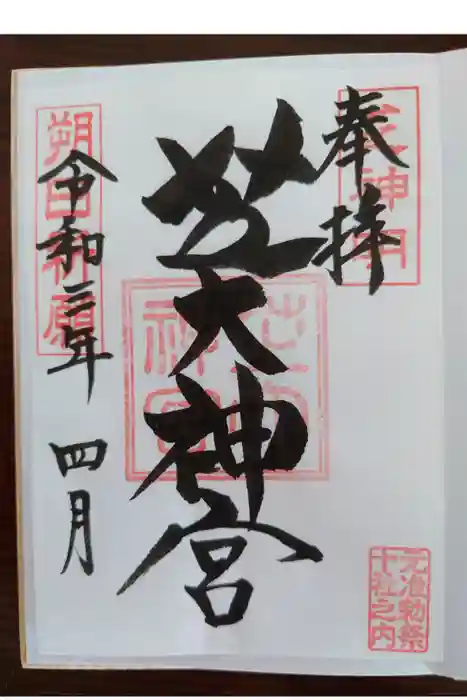 奉拝
芝大神宮
令和三年 四月
朔日祈願
元准勅祭
十社之内